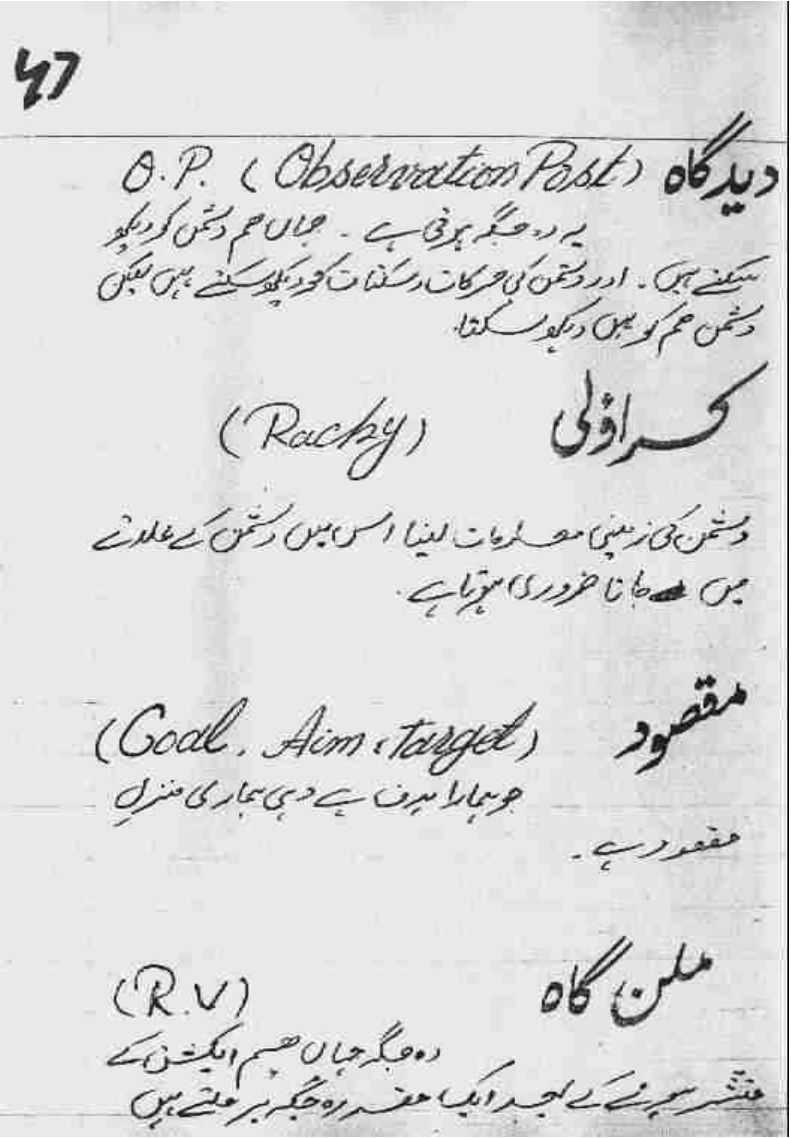 47
دیدگاہ O.P. (Observation Post)
یہ وہ جگہ ہوتی ہے ۔ جہاں ھم دشمن کو دیکھ
سکتے ہیں ۔ اور دشمن کی حرکات و سکنات کو دیکھ سکتے ہیں لیکن
دشمن ھم کو نہیں دیکھ سکتا۔
کراؤلی (Racky)
دشمن کی زمینی معلومات لینا اس میں دشمن کے علاقے
میں جانا ضروری ہوتا ہے ۔
مقصود (Goal, Aim, target)
جو ہمارا ہدف ہے وہی ہماری منزلِ
مقصود ہے ۔
ملن گاہ (R.V)
وہ جگہ جہاں ھم ایکشن کے
منتشر ہونے کے بعد ایک مقررہ جگہ پر ملتے ہیں